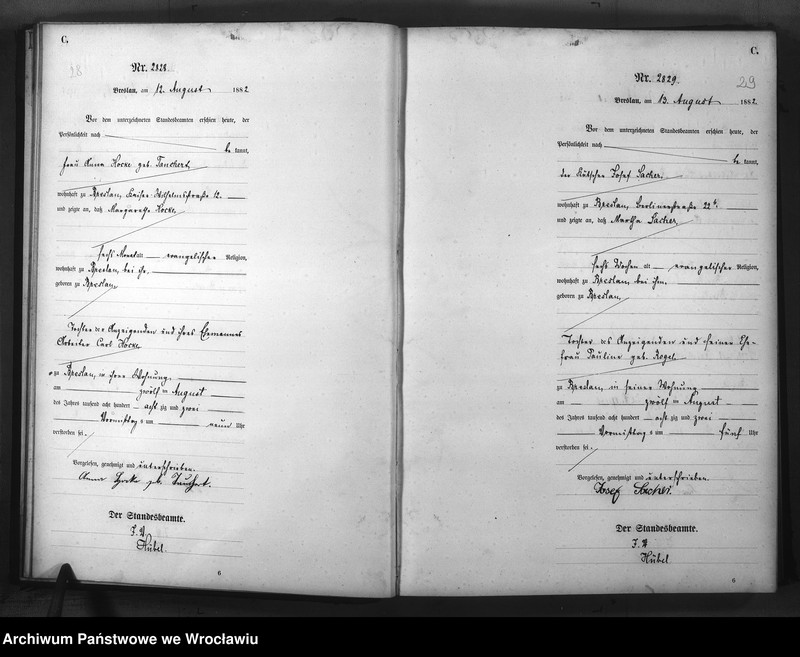 C.
28
Nr. 2828.
Breslau, am 12. August 1882
Vor dem unterzeichneten Standesbeamten erschien heute, der
Persönlichkeit nach
be kannt,
Frau Anna Hocke geb. Tauchert,
wohnhaft zu Breslau, Kaiser Wilhelmstraße 12.
und zeigte an, daß Margarethe Hocke,
sechs Monat alt evangelischer Religion,
wohnhaft zu Breslau, bei ihr,
geboren zu Breslau,
Tochter der Anzeigenden und ihres Ehemannes
Arbeiter Carl Hocke
zu Breslau, in ihrer Wohnung
am zwölften August
des Jahres tausend acht hundert achtzig und zwei
Vormittags um neun Uhr
verstorben sei.
Vorgelesen, genehmigt und unterschrieben.
Anna Hocke geb. Tauchert.
Der Standesbeamte.
J. V.
Hübel.
6
C.
29
Nr. 2829.
Breslau, am 13. August 1882.
Vor dem unterzeichneten Standesbeamten erschien heute, der
Persönlichkeit nach
be kannt,
der Kutscher Josef Sacher,
wohnhaft zu Breslau, Berlinerstraße 22b.
und zeigte an, daß Martha Sacher,
sechs Wochen alt evangelischer Religion,
wohnhaft zu Breslau, bei ihm,
geboren zu Breslau,
Tochter des Anzeigenden und seiner Ehe-
frau Pauline geb. Bogel
zu Breslau, in seiner Wohnung
am zwölften August
des Jahres tausend acht hundert achtzig und zwei
Vormittags um fünf Uhr
verstorben sei.
Vorgelesen, genehmigt und unterschrieben.
Josef Sacher.
Der Standesbeamte.
J. V.
Hübel
6
Archiwum Państwowe we Wrocławiu